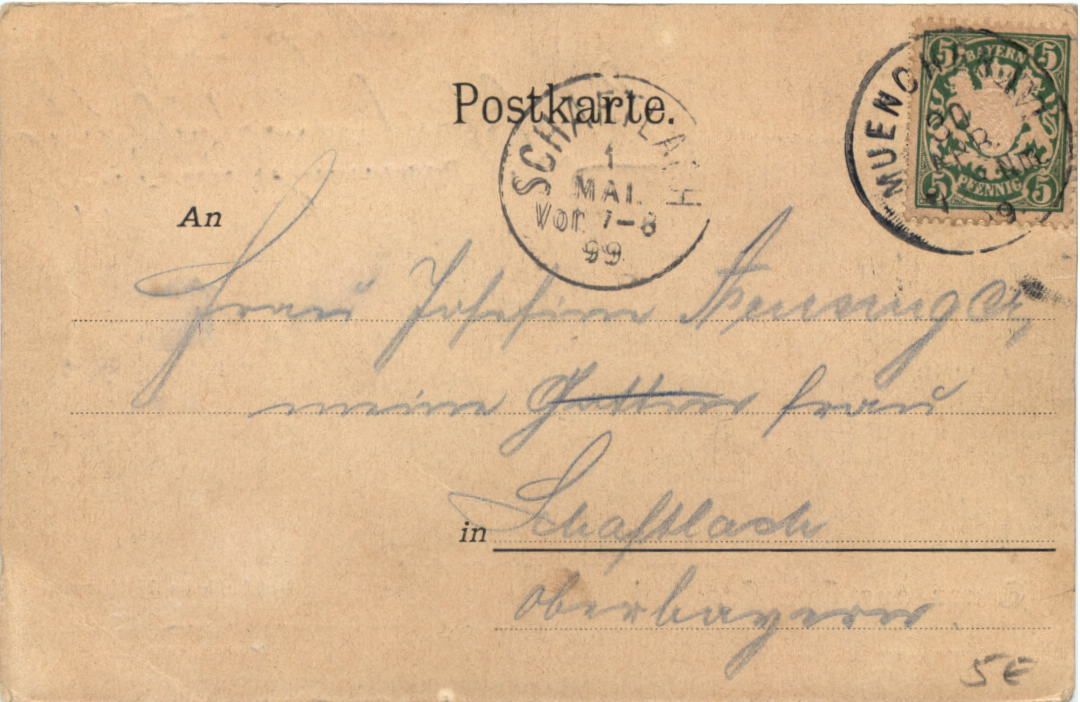 Postkarte.
SCHAFTLACH
1
MAI.
Vor. 7-8
99
MUENCHEN
5 BAYERN 5
5 PFENNIG 5
An
Frau Josefine
meine frau
in Schaftlach
Oberbayern
5€